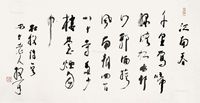 江南春
千里鶯啼
綠映紅水村
山郭酒旗
風南朝四百
八十寺多少
樓臺煙雨
中
杜牧詩
老人